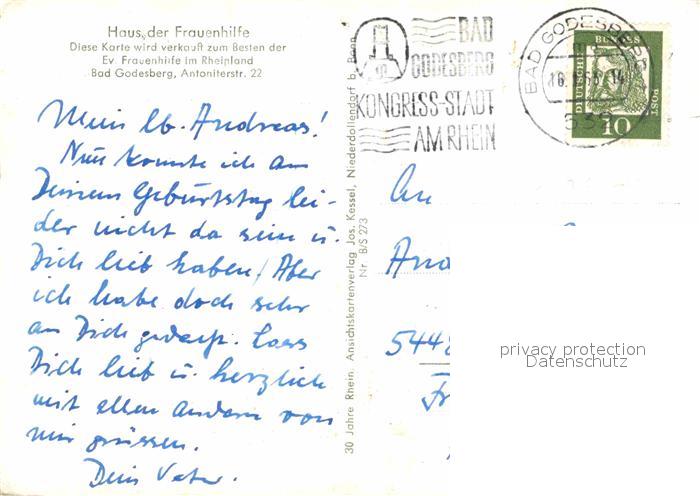 Haus der Frauenhilfe
Diese Karte wird verkauft zum Besten der
Ev. Frauenhilfe im Rheinland
Bad Godesberg, Antoniterstr. 22
Mein lb. Andreas!
Nun konnte ich an
Deinem Geburtstag lei-
der nicht da sein u.
Dich lieb haben! Aber
ich habe doch sehr
an Dich gedacht. Lass
Dich lieb u. herzlich
mit allen andern von
mir grüssen.
Dein Vater.
30 Jahre Rhein. Ansichtskartenverlag Jos. Kessel, Niederdollendorf b. Bonn
Nr. B/S 273
BAD
GODESBERG
KONGRESS-STADT
AM RHEIN
BAD GODESBERG
532
DEUTSCHE BUNDESPOST
10
An
And
5448
Fr
privacy protection
Datenschutz